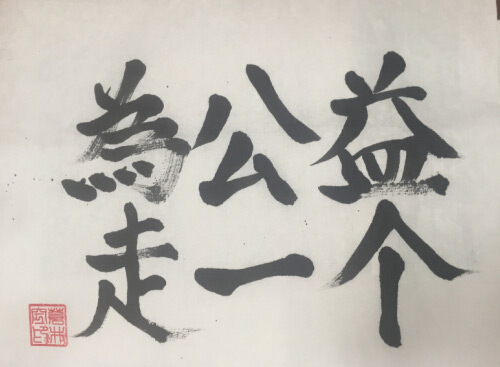 為公益
走一个